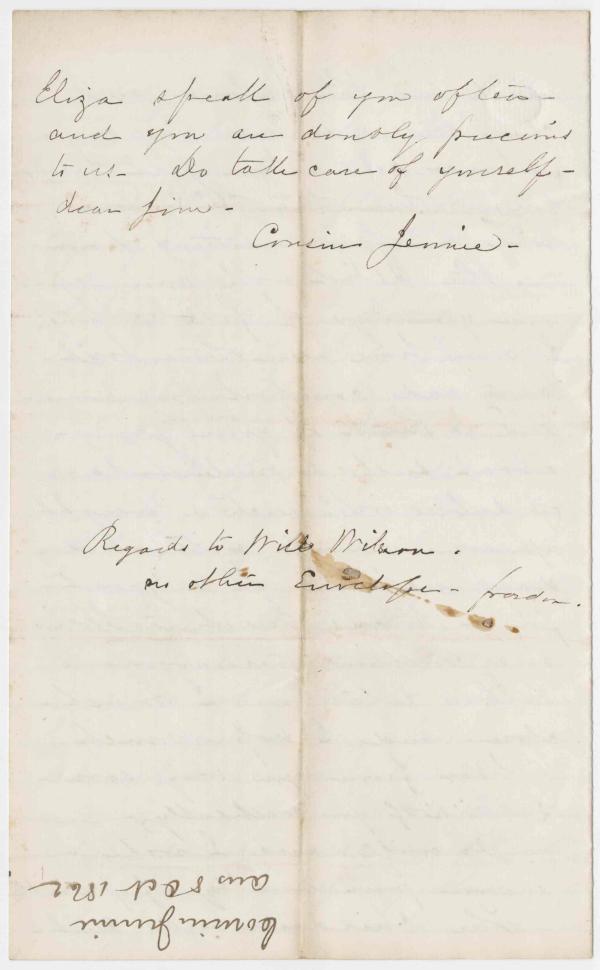 Eliza speak of you often -
and you are doubly precious
to us - Do take care of yourself -
dear Jim -
Cousin Jennie -
Regards to Will Wilson.
no other Envelope - pardon.
Cousin Jennie
ans 8 Oct 1862